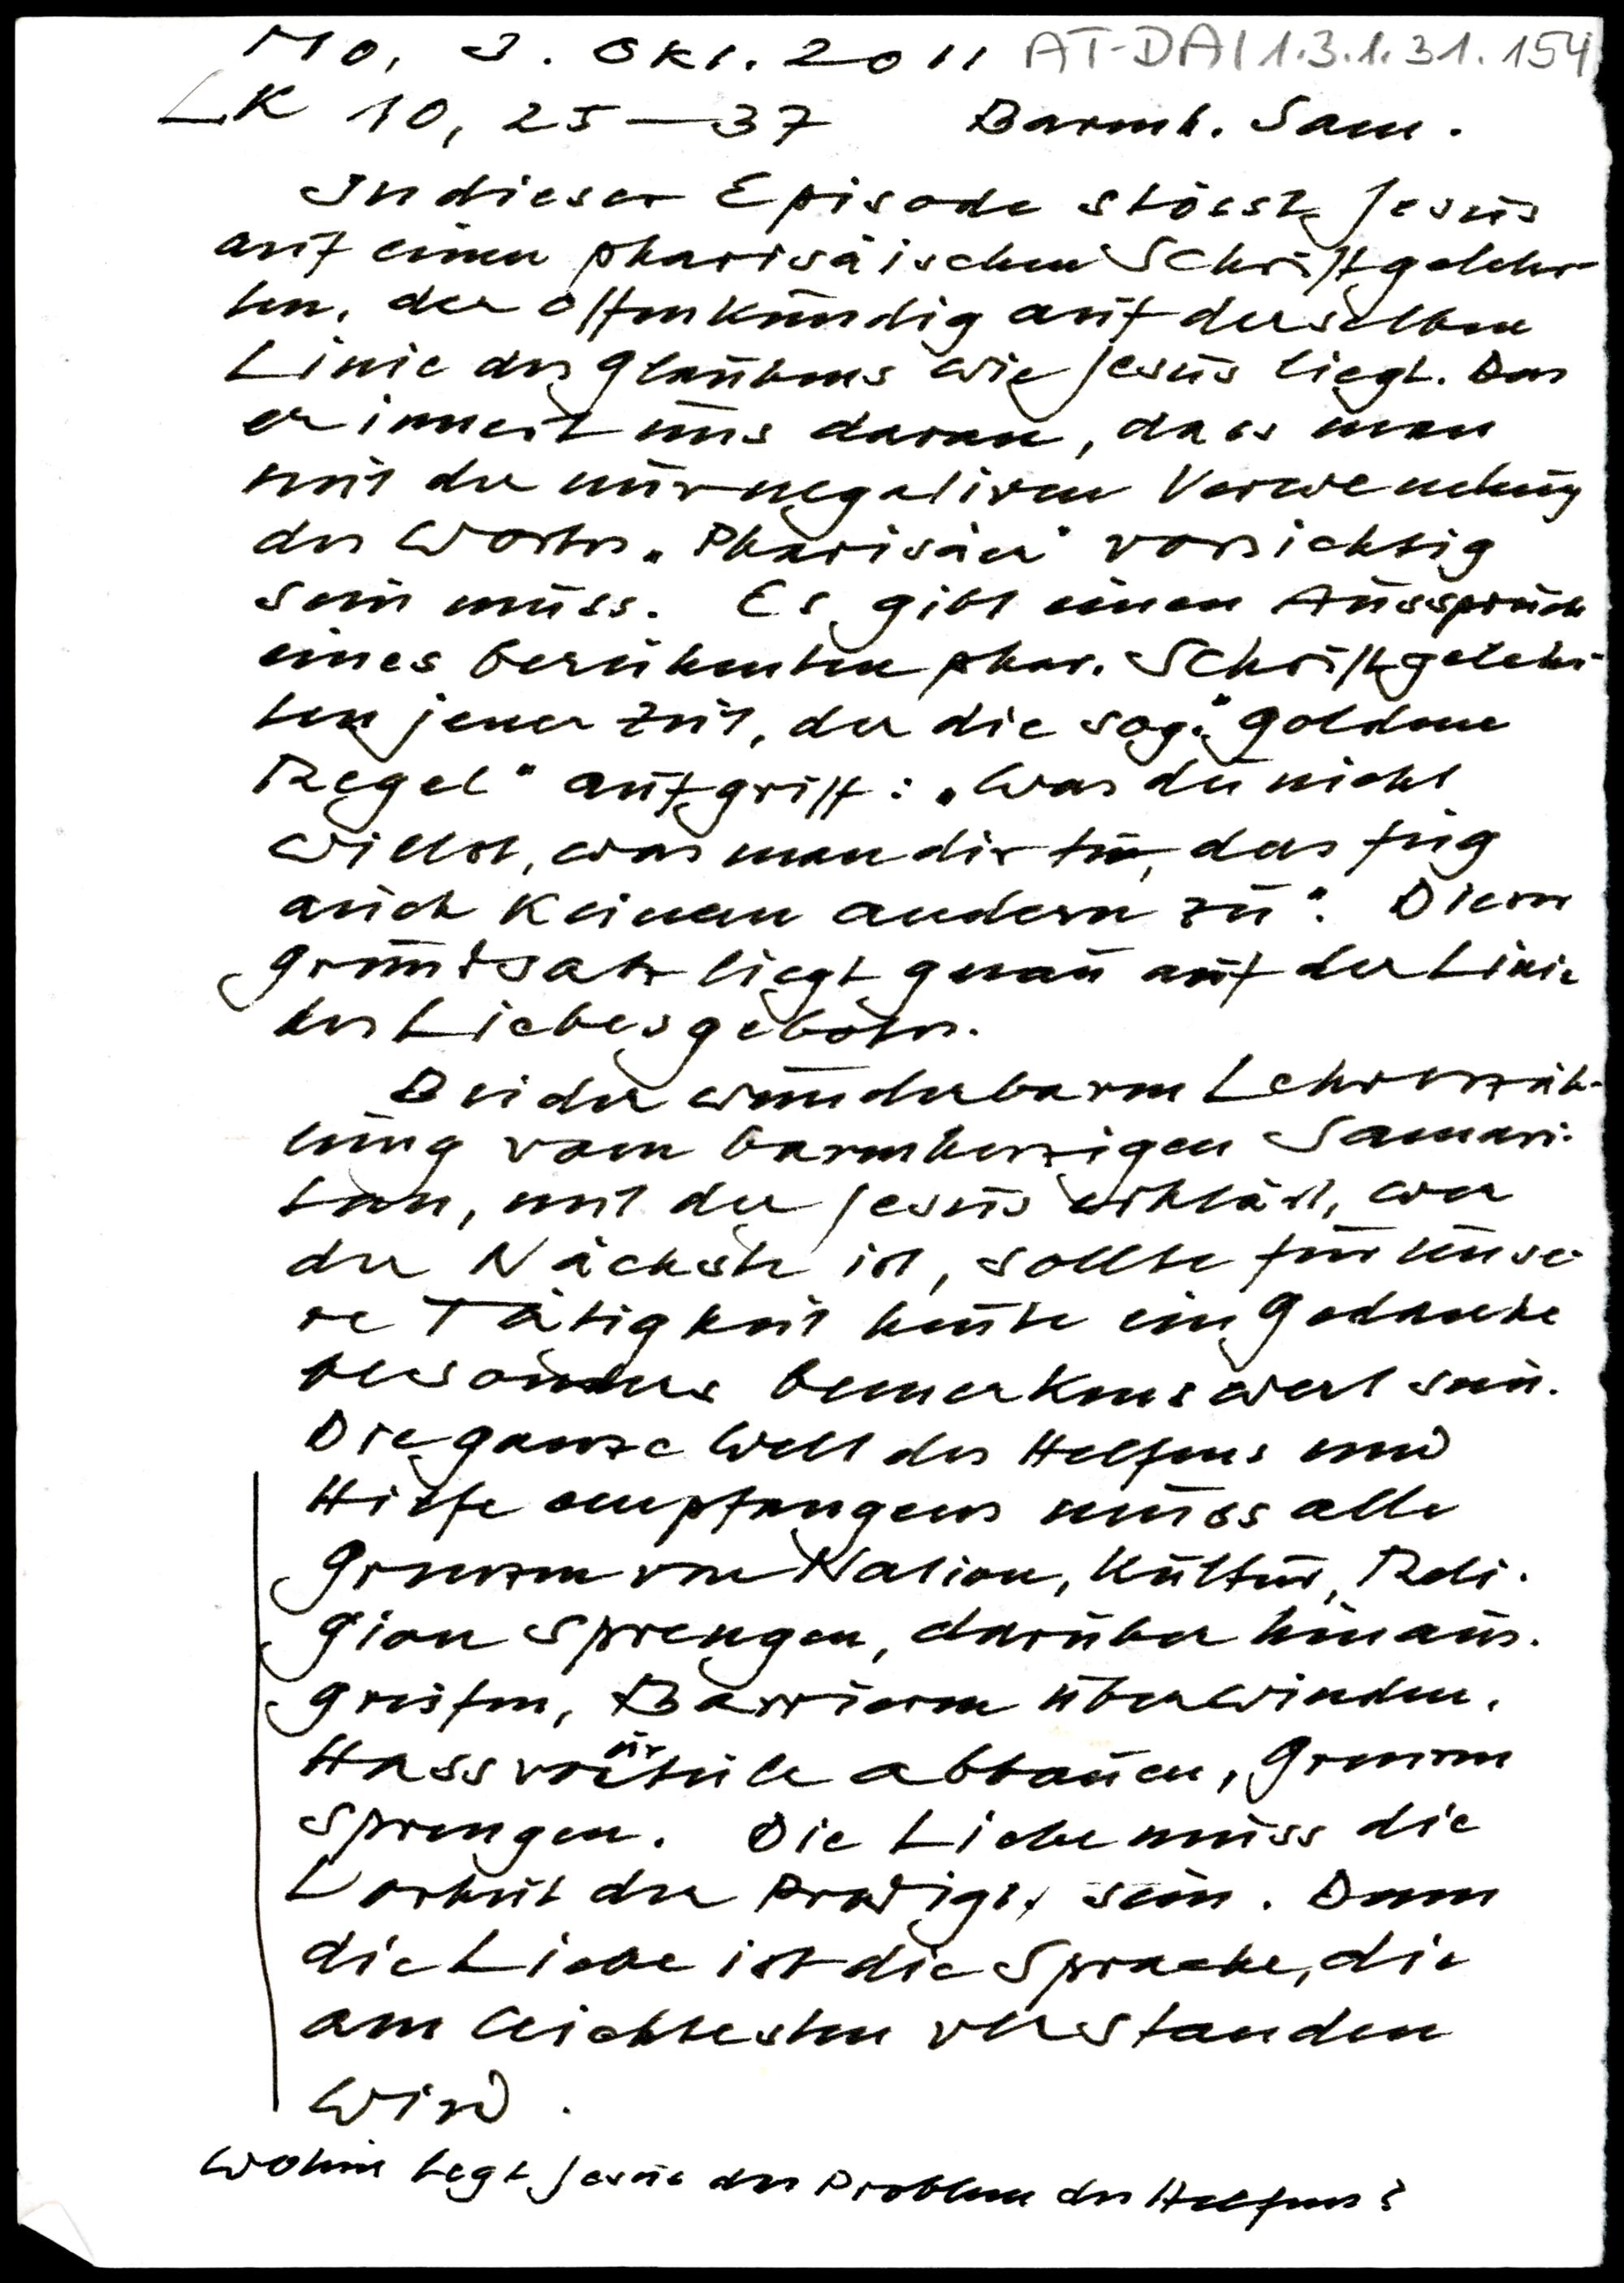 Mo, 3. Okt. 2011 AT-DAI 1.3.1.31.154
LK 10, 25–37 Barmh. Sam.
In dieser Episode stösst Jesus
auf einen pharisäischen Schriftgelehr-
ten, der offenkundig auf derselben
Linie des Glaubens wie Jesus liegt. Das
erinnert uns daran, dass man
mit der nur negativen Verwendung
des Wortes „Pharisäer" vorsichtig
sein muss. Es gibt einen Ausspruch
eines berühmten phar. Schriftgelehr-
ten jener Zeit, der die sog. "Goldene
Regel" aufgriff: „Was du nicht
willst, was man dir tu, das füg
auch keinem andern zu". Dieser
Grundsatz liegt genau auf der Linie
des Liebesgebotes.
Bei der wunderbaren Lehrerzäh-
lung vom barmherzigen Samari-
tan, mit der Jesus erklärt, wer
der Nächste ist, sollte für unse-
re Tätigkeit heute ein Gedanke
besonders bemerkenswert sein.
Die ganze Welt des Helfens und
Hilfe empfangens muss alle
Grenzen von Nation, Kultur, Reli-
gion sprengen, darüber hinaus-
greifen, Barrieren überwinden,
Hassvorurteile abbauen, Grenzen
sprengen. Die Liebe muss die
Vorhut der Predigt sein. Denn
die Liebe ist die Sprache, die
am leichtesten verstanden
wird.
Wohin legt Jesus das Problem des Helfens?